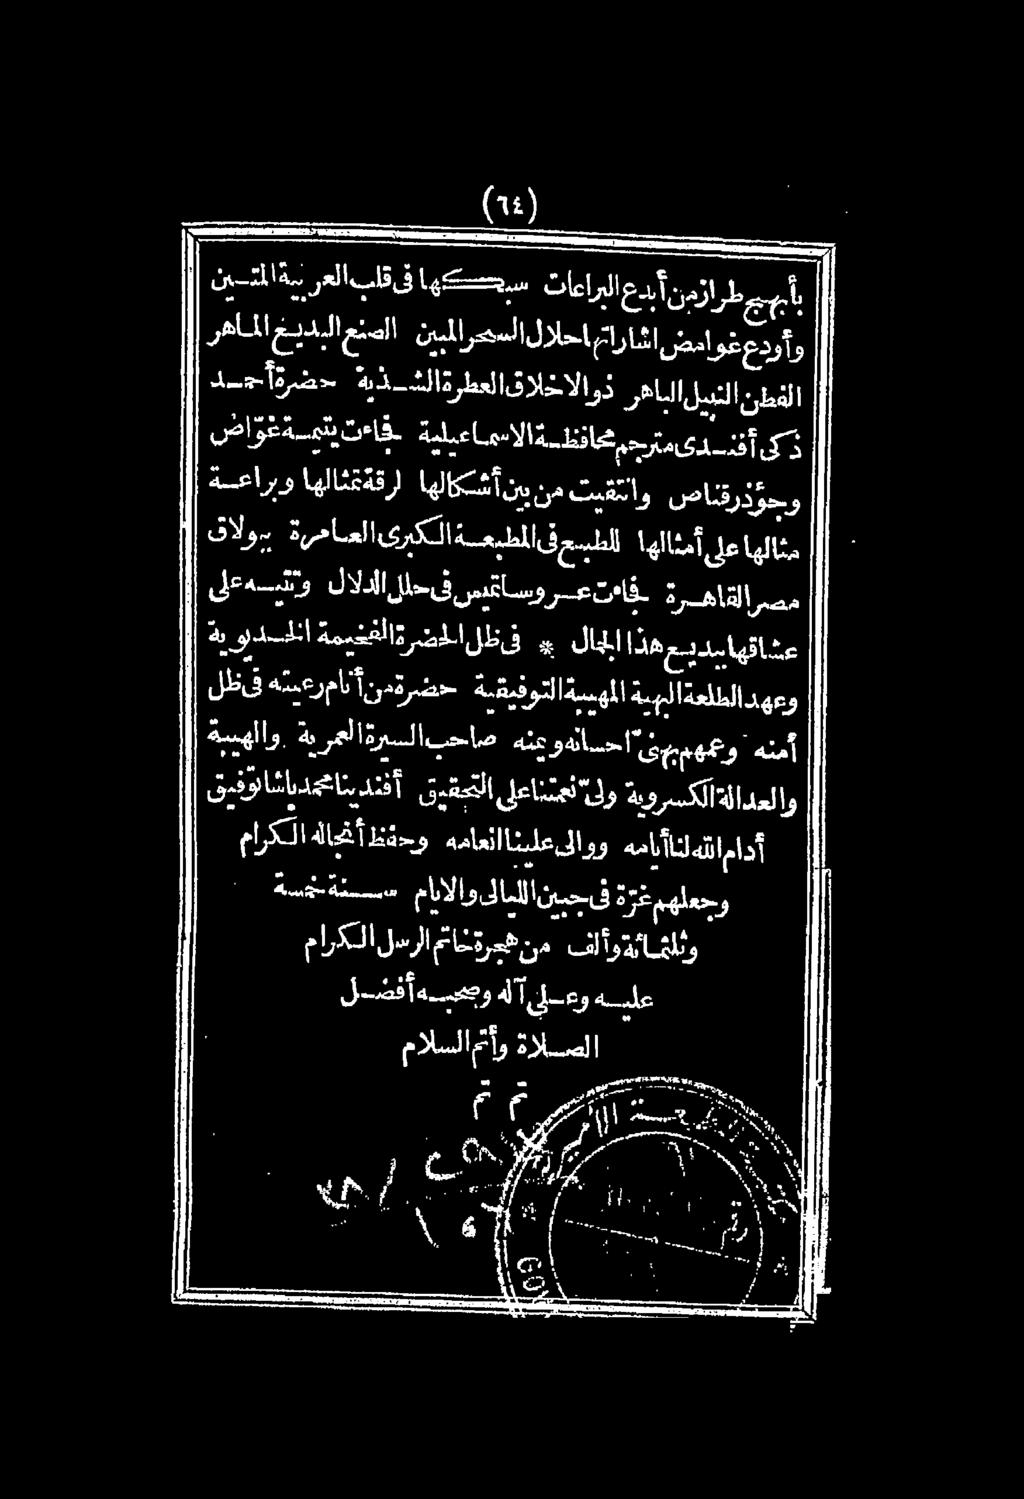 (٦٤)
بأبهج طراز من أبدع البراعات سبكها فى قلب العربية المتين
وأودع غوامض اشاراتها حلال السحر المبين الصنع البديع الماهر
الفطن النبيل الباهر ذو الاخلاق العطرة الشذية حضرة أحمد
ذكى أفندى مترجم محافظة الاسماعيلية فجاءت يتيمة غوّاض
وجؤذر قناص وانتقيت من بين أشكالها لرقة تمثالها وبراعة
مثالها على أمثالها للطبع فى المطبعة الكبرى العامرة ببولاق
مصر القاهرة فجاءت عروسا تميس فى حلل الدلال وتتيه على
عشاقها ببديع هذا الجمال * فى ظل الحضرة الفخيمة الخديوية
وعهد الطلعة البهية المهيبة التوفيقية حضرة من أنام رعيته فى ظل
أمنه وعمهم بهنىّ احسانه ويمنه صاحب السيرة العمرية والهيبة
والعدالة الكسروية ولىّ نعمتنا على التحقيق أفندينا محمد باشا توفيق
أدام الله لنا أيامه ووالى علينا انعامه وحفظ أنجاله الكرام
وجعلهم غرّة فى جبين الليالى والايام سنة خمسة
وثلثمائة وألف من هجرة خاتم الرسل الكرام
عليه وعلى آله وصحبه أفضل
الصلاة وأتم السلام
تم تم